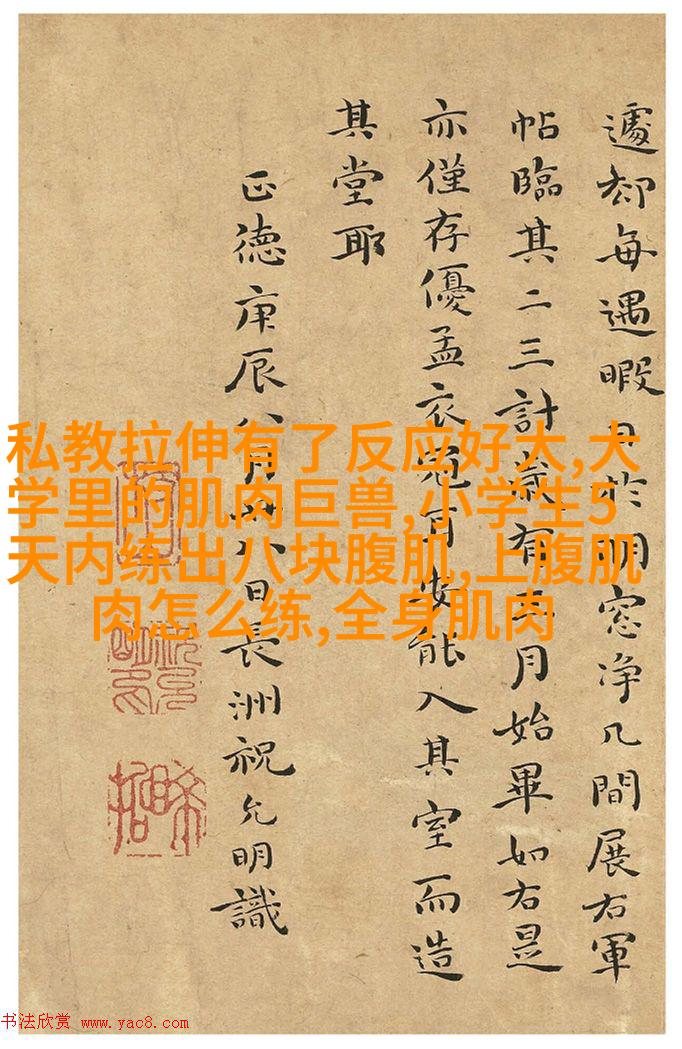 遽却每遇暇日於明窓净几間展右軍
帖臨其二三計歳有月始畢如右是
亦僅存優孟衣冠耳安能入其室而造
其堂耶
正德庚辰八月廿八日長洲祝允明識
私教拉伸有了反应好大,大
学里的肌肉巨兽,小学生5
天内练出八块腹肌,上腹肌
肉怎么练,全身肌肉
书法欣赏 www.yac8.com